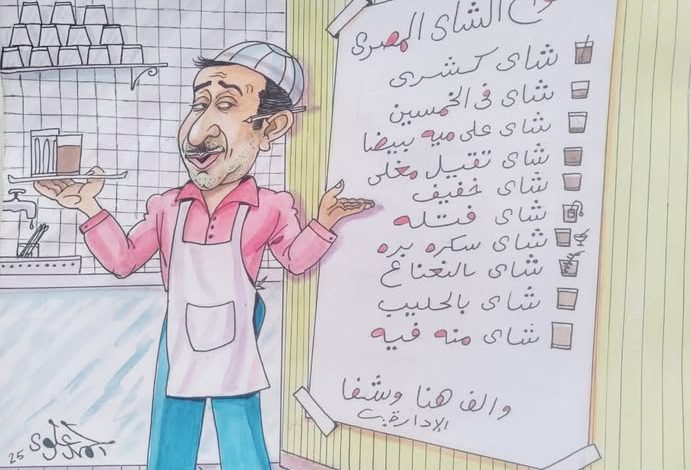 الشاى المصرى
شاى كشرى
شاى فى الخمسين
شاى على ميه بيضا
شاى تقيل مغلى
شاى خفيف
شاى فتله
شاى سكره بره
شاى بالنعناع
شاى بالحليب
شاى منه فيه
والف هنا وشفا
الادارة
25